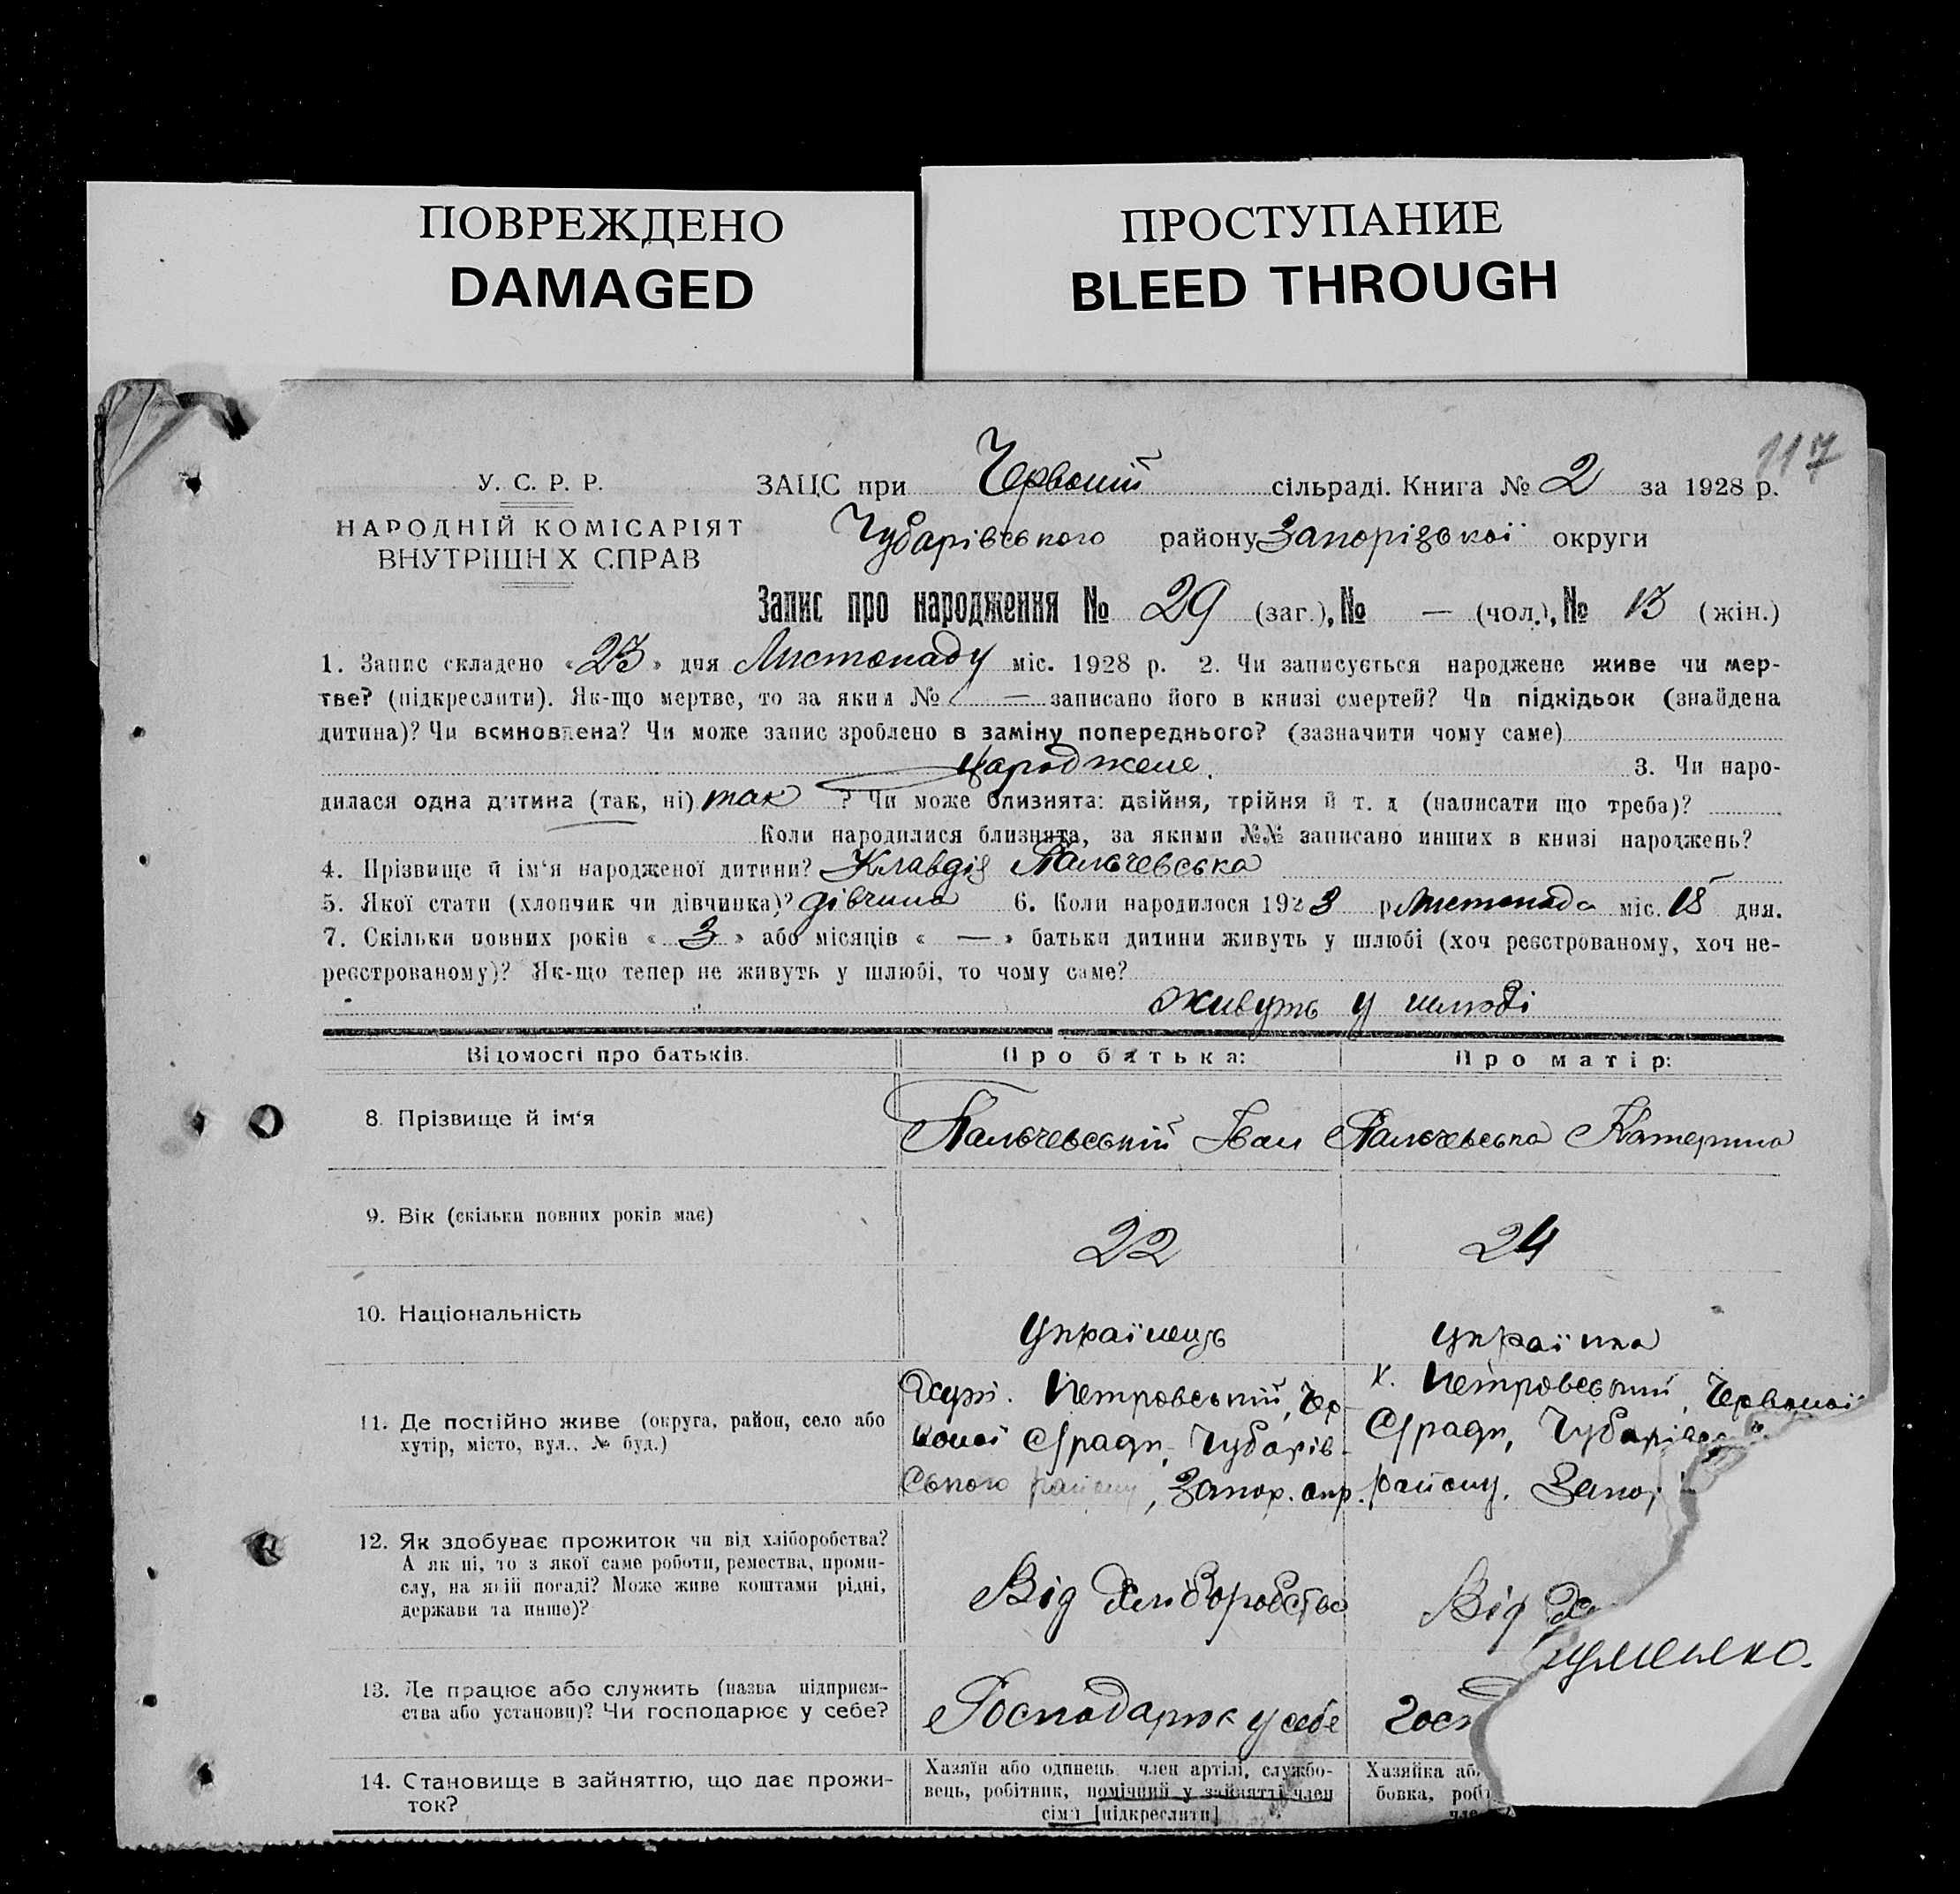 ПОВРЕЖДЕНО
DAMAGED
ПРОСТУПАНИЕ
BLEED THROUGH
117
У. С. Р. Р.
НАРОДНІЙ КОМІСАРІЯТ
ВНУТРІШН Х СПРАВ
ЗАЦС при Червоній сільраді. Книга № 2 за 1928 р.
Чубарівського району Запорізької округи
Запис про народження № 29 (заг.), № — (чол.), № 13 (жін.)
1. Запис складено «23» дня Листопаду міс. 1928 р. 2. Чи записується народжене живе чи мер-
тве? (підкреслити). Як-що мертве, то за яким № — записано його в книзі смертей? Чи підкідьок (знайдена
дитина)? Чи всиновлена? Чи може запис зроблено в заміну попереднього? (зазначити чому саме)
Народжене. 3. Чи наро-
дилася одна дитина (так, ні) так ? Чи може близнята: двійня, трійня й т. д (написати що треба)?
Коли народилися близнята, за якими №№ записано инших в книзі народжень?
4. Прізвище й ім'я народженої дитини? Клавдія Пальчевська
5. Якої стати (хлопчик чи дівчинка)? дівчина 6. Коли народилося 1928 р Листопада міс. 18 дня.
7. Скільки повних років « 3 » або місяців « — » батьки дитини живуть у шлюбі (хоч реєстрованому, хоч не-
реєстрованому)? Як-що тепер не живуть у шлюбі, то чому саме?
живуть у шлюбі
Відомості про батьків.
Про батька:
Про матір:
8. Прізвище й ім'я
Пальчевський Іван
Пальчевська Катерина
9. Вік (скільки повних років має)
22
24
10. Національність
Українець
Українка
11. Де постійно живе (округа, район, село або
хутір, місто, вул., № буд.)
Хут. Петровський, Чер-
воної С/ради, Чубарів-
ського району, Запор. окр.
х. Петровський, Червоної
С/ради,
району,
12. Як здобуває прожиток чи від хліборобства?
А як ні, то з якої саме роботи, ремества, проми-
слу, на якій посаді? Може живе коштами рідні,
держави та инше)?
Від Хліборобства
Від
13. Де працює або служить (назва підприєм-
ства або установи)? Чи господарює у себе?
Господарює у себе
14. Становище в зайняттю, що дає прожи-
ток?
Хазяїн або одинець, член артілі, службо-
вець, робітник, помічний у зайнятті член
сім'ї [підкреслити]
Хазяйка
бовка,